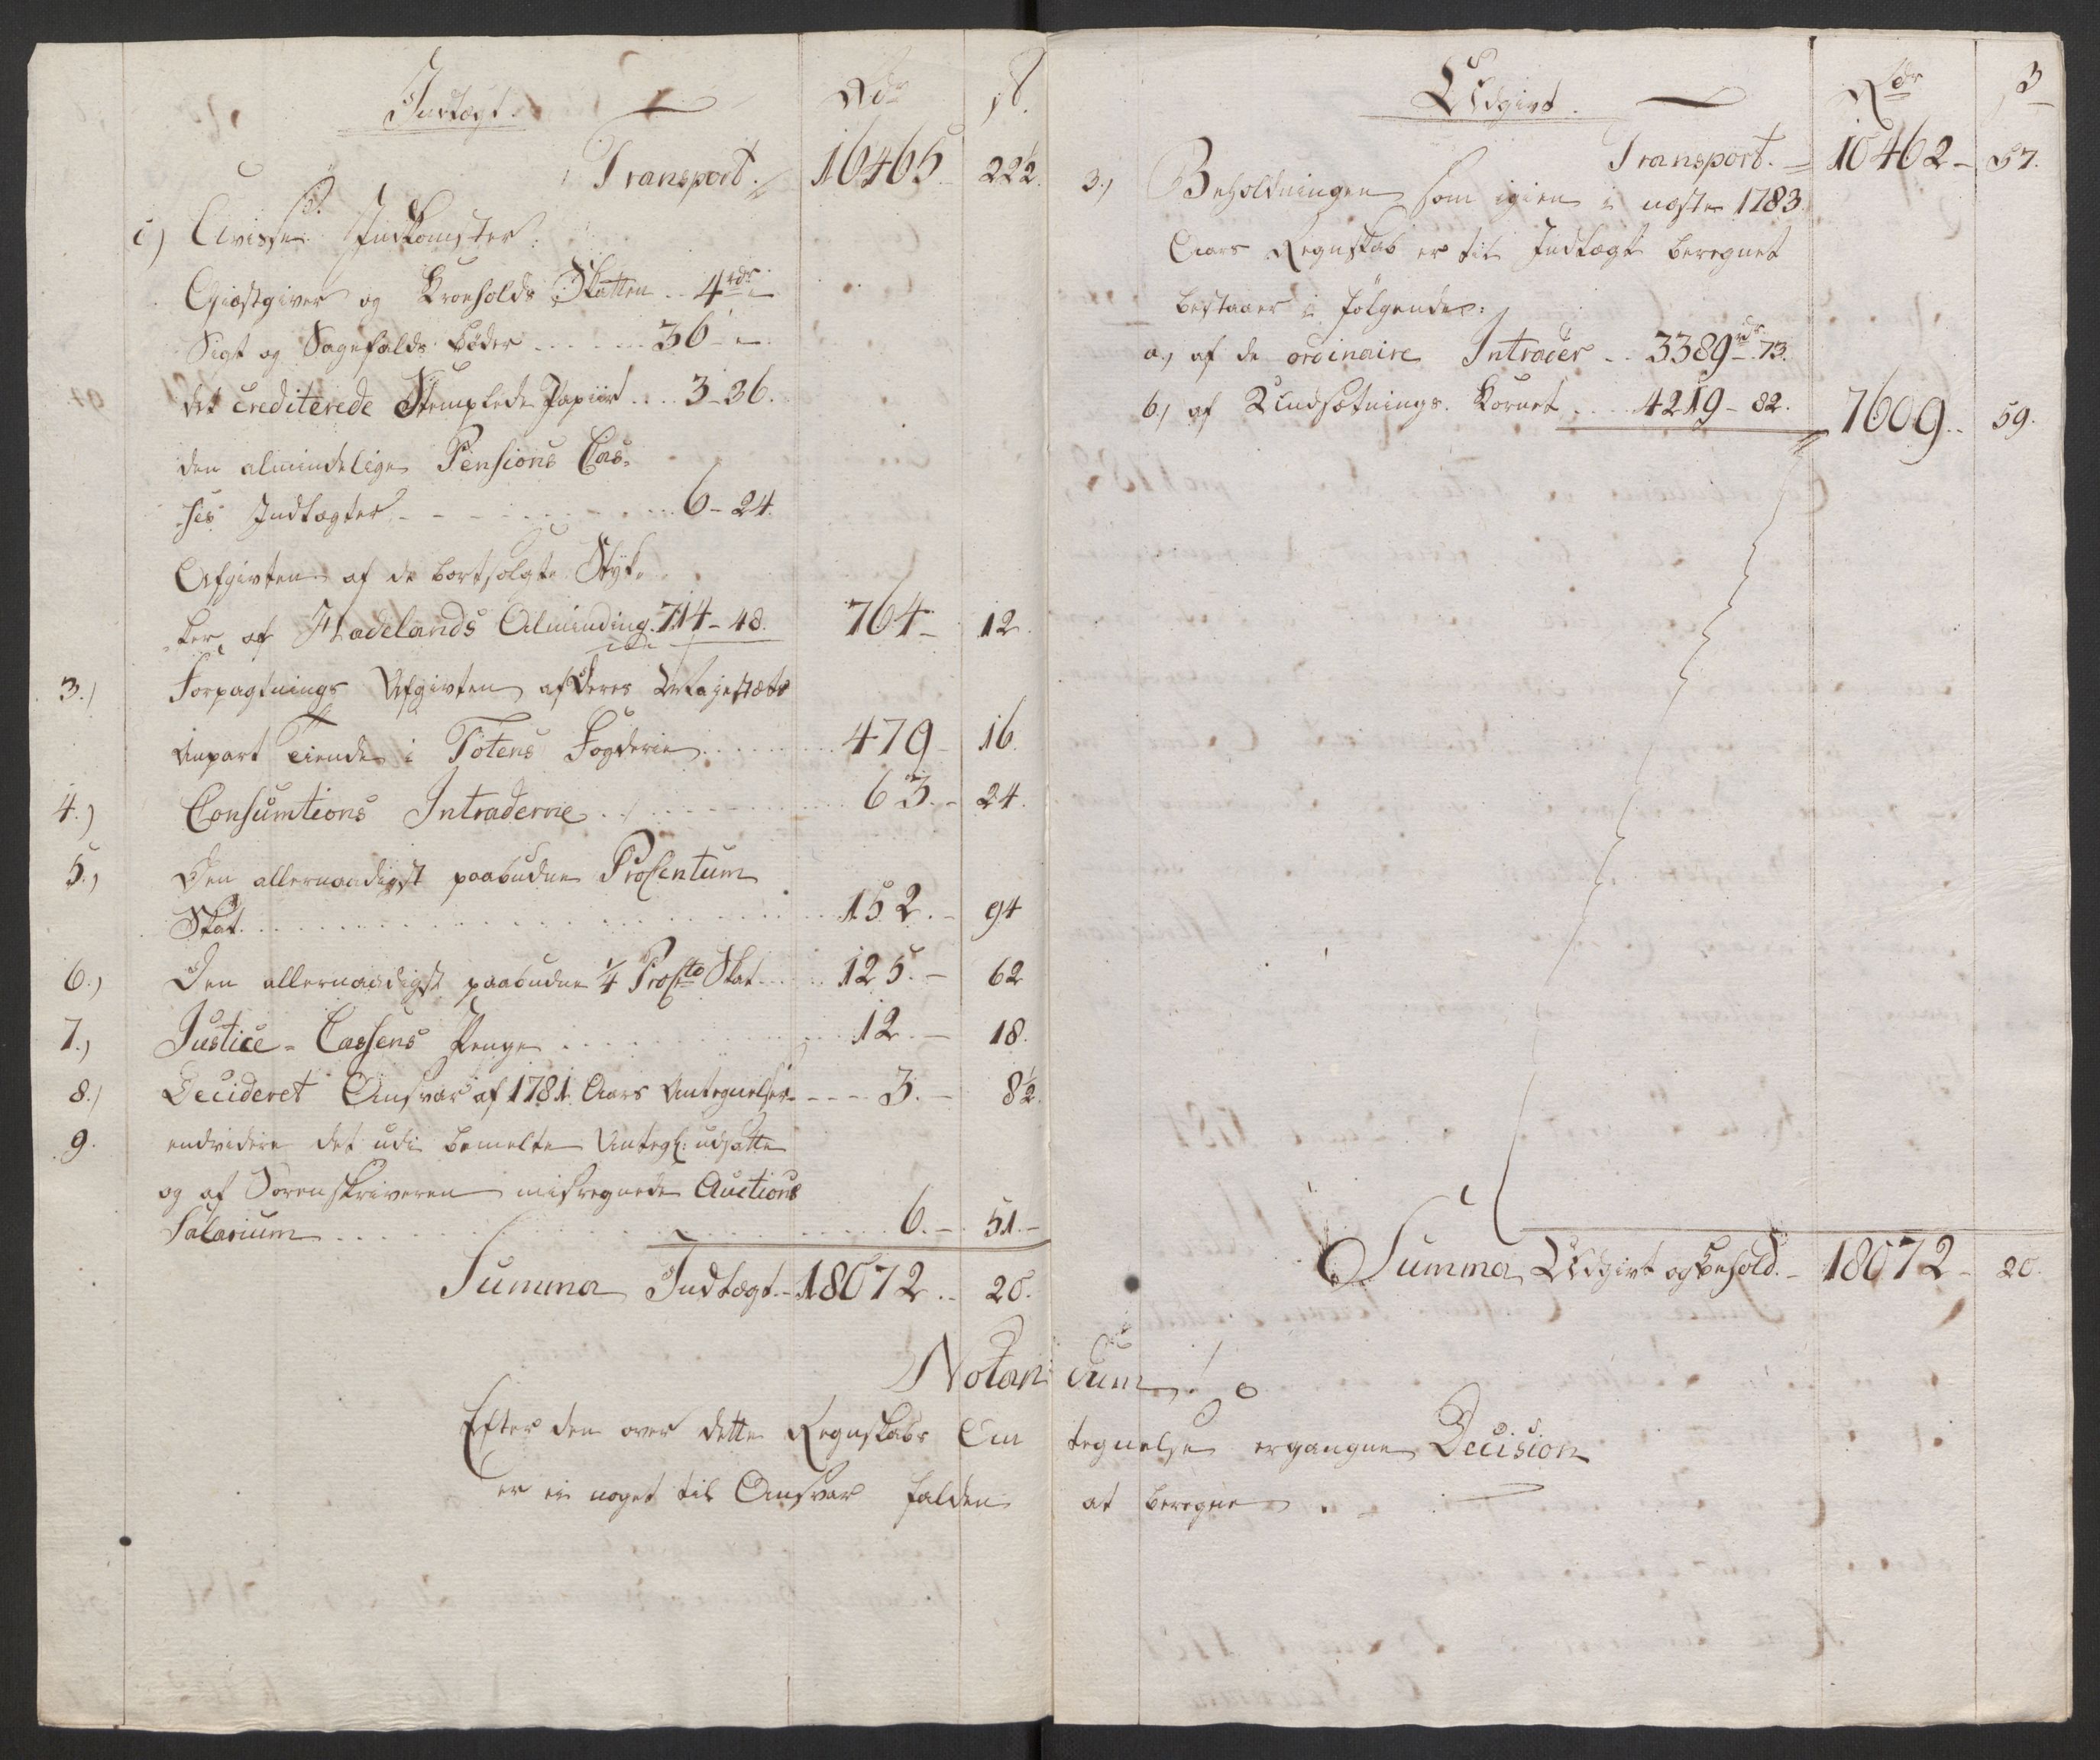 Indtægt. Rdr ß.
Transport. 16465 22½.
c) Uvisse Indkomster:
Giæstgiver og Kroeholds Skatten .. 4 rdr -
Sigt og Sagefalds Bøder ...... 36 -
det crediterede Stemplede Papiir .... 3-36.
den almindelige Pensions Cas-
ses Indtægter ........ 6-24.
Afgivten af de bortsolgte Styk-
ker af Hadelands Alminding. 714-48. 764- 12.
3.) Forpagtnings Afgivten af Deres Majestæts
Anpart Tiende i Totens Fogderie ...... 479- 16.
4.) Consumtions Intraderne ........ 63.- 24.
5.) Den allernaadigst paabudne Procentum
Skat ........ 152.- 94
6.) Den allernaadigst paabudne ¼ Procto Skat .... 125.- 62
7.) Justice-Cassens Penge ........ 12.- 18.
8.) Decideret Ansvar af 1781 Aars Antegnelser ---- 3.- 8½.
9. endvidere det udi bemelte Antegl: udsatte
og af Sorenskriveren misregnede Auctions
Salarium ........ 6.- 51.-
Summa Indtægt.- 18072.. 20.
Udgivt. Rdr ß
Transport.- 10462- 57.
3.) Beholdningen som igien i næste 1783
Aars Regnskab er til Indtægt beregnet
bestaaer i følgende:
a.) af de ordinaire Intrader .. 3389 rdr 73.
b.) af Indsætnings Kornet .... 4219-82. 7609.. 59.
Summa Udgivt og Behold.- 18072- 20.
Notandum!
Efter den over dette Regnskabs Antegnelse ergangne Decision
er ei noget til Ansvar falden at beregne.